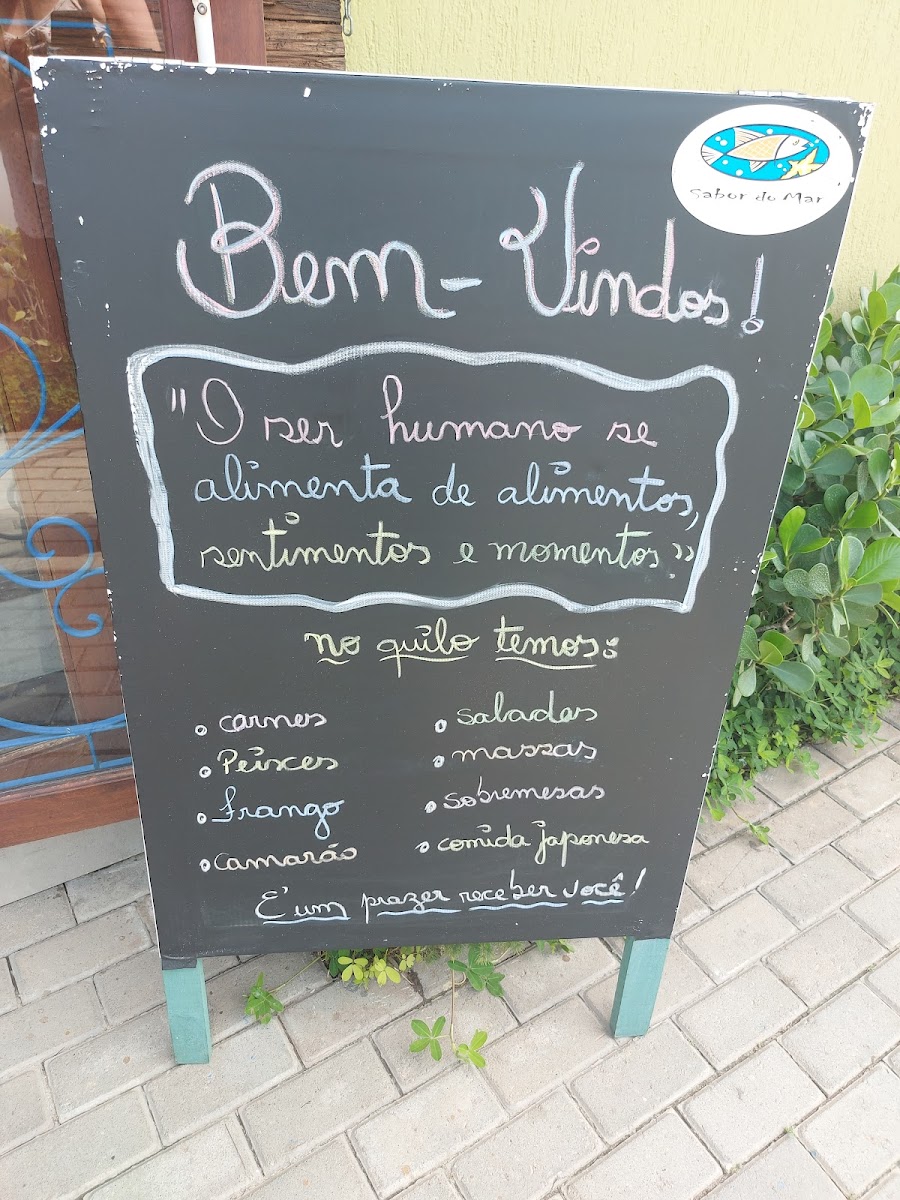 Sabor do Mar
Bem-Vindos!
"O ser humano se
alimenta de alimentos,
sentimentos e momentos."
no quilo temos:
• carnes
• Peixes
• frango
• camarão
• saladas
• massas
• sobremesas
• comida japonesa
É um prazer receber você!